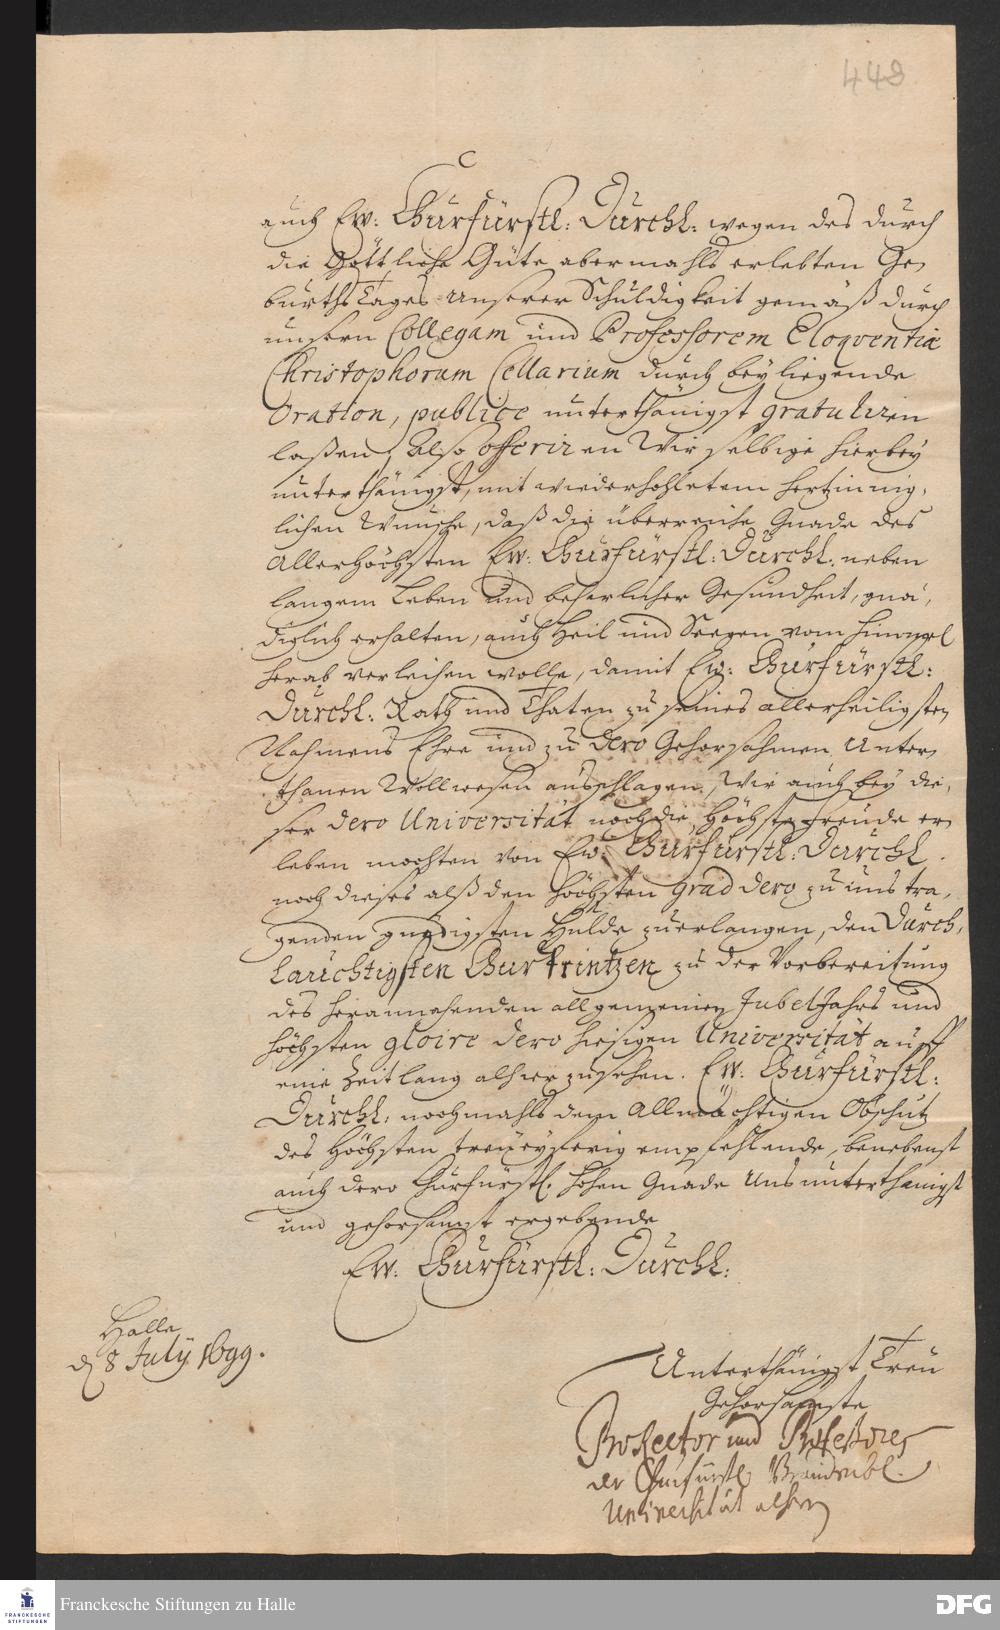 448
auch Ew: Churfürstl: Durchl: wegen des durch
die Göttliche Güte abermahls erlebten Ge,
burths Tages unserer Schuldigkeit gemäß durch
unsern Collegam und Professorem Eloqventiæ
Christophorum Cellarium durch beyliegende
Oration, publice unterthänigst gratuliren
laßen, Also offeriren Wir selbige hierbey
unterthänigst, mit wiederhohletem hertzinnig,
lichen Wunsche, daß die überreiche Gnade des
Allerhöchsten Ew: Churfürstl: Durchl: neben
langem Leben und beharlicher Gesundheit, gnä,
diglich erhalten, auch Heil und Seegen vom Himmel
herab verleihen wolle, damit Ew: Churfürstl:
Durchl: Rath und Thaten zu seines allerheiligsten
Nahmens Ehre und zu dero Gehorsahmen Unter,
thanen Wollwesen ausschlagen, Wir auch bey die,
ser dero Universität noch die Höchste Freude er,
leben mochten von Ew: Churfürstl: Durchl.
noch dieses alß den höchsten grad dero zu uns tra,
genden gnädigsten Hulde zuerlangen, den Durch,
lauchtigsten Churprintzen zu der Vorbereitung
des herannehenden allgemeinen JubelJahrs und
höchsten gloire dero hiesigen Universität auff
eine Zeitlang alhier zusehen. Ew: Churfürstl:
Durchl: nochmahls dem Allmächtigen Obschutz
des Höchsten treueyferig empfehlende, benebenst
auch dero Churfürstl. hohen Gnade Uns unterthänigst
und gehorsamst ergebende
Ew: Churfürstl: Durchl:
Halle
d 8 July 1699.
Unterthänigst Treu
Gehorsamste
ProRector und Professores
der Churfürstl. Brandenbl.
Universität alhier
Franckesche Stiftungen zu Halle
FRANCKESCHE
STIFTUNGEN
DFG